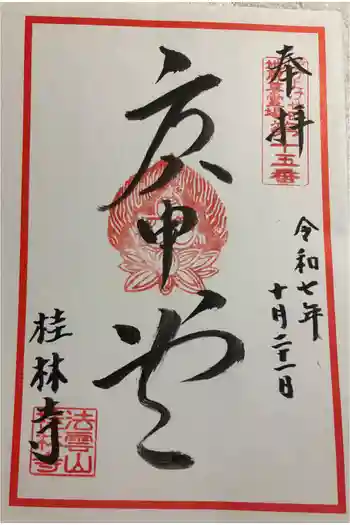 奉拝
令和七年
十月二十一日
庚申堂
桂林寺
十五番
法雲山
桂林寺